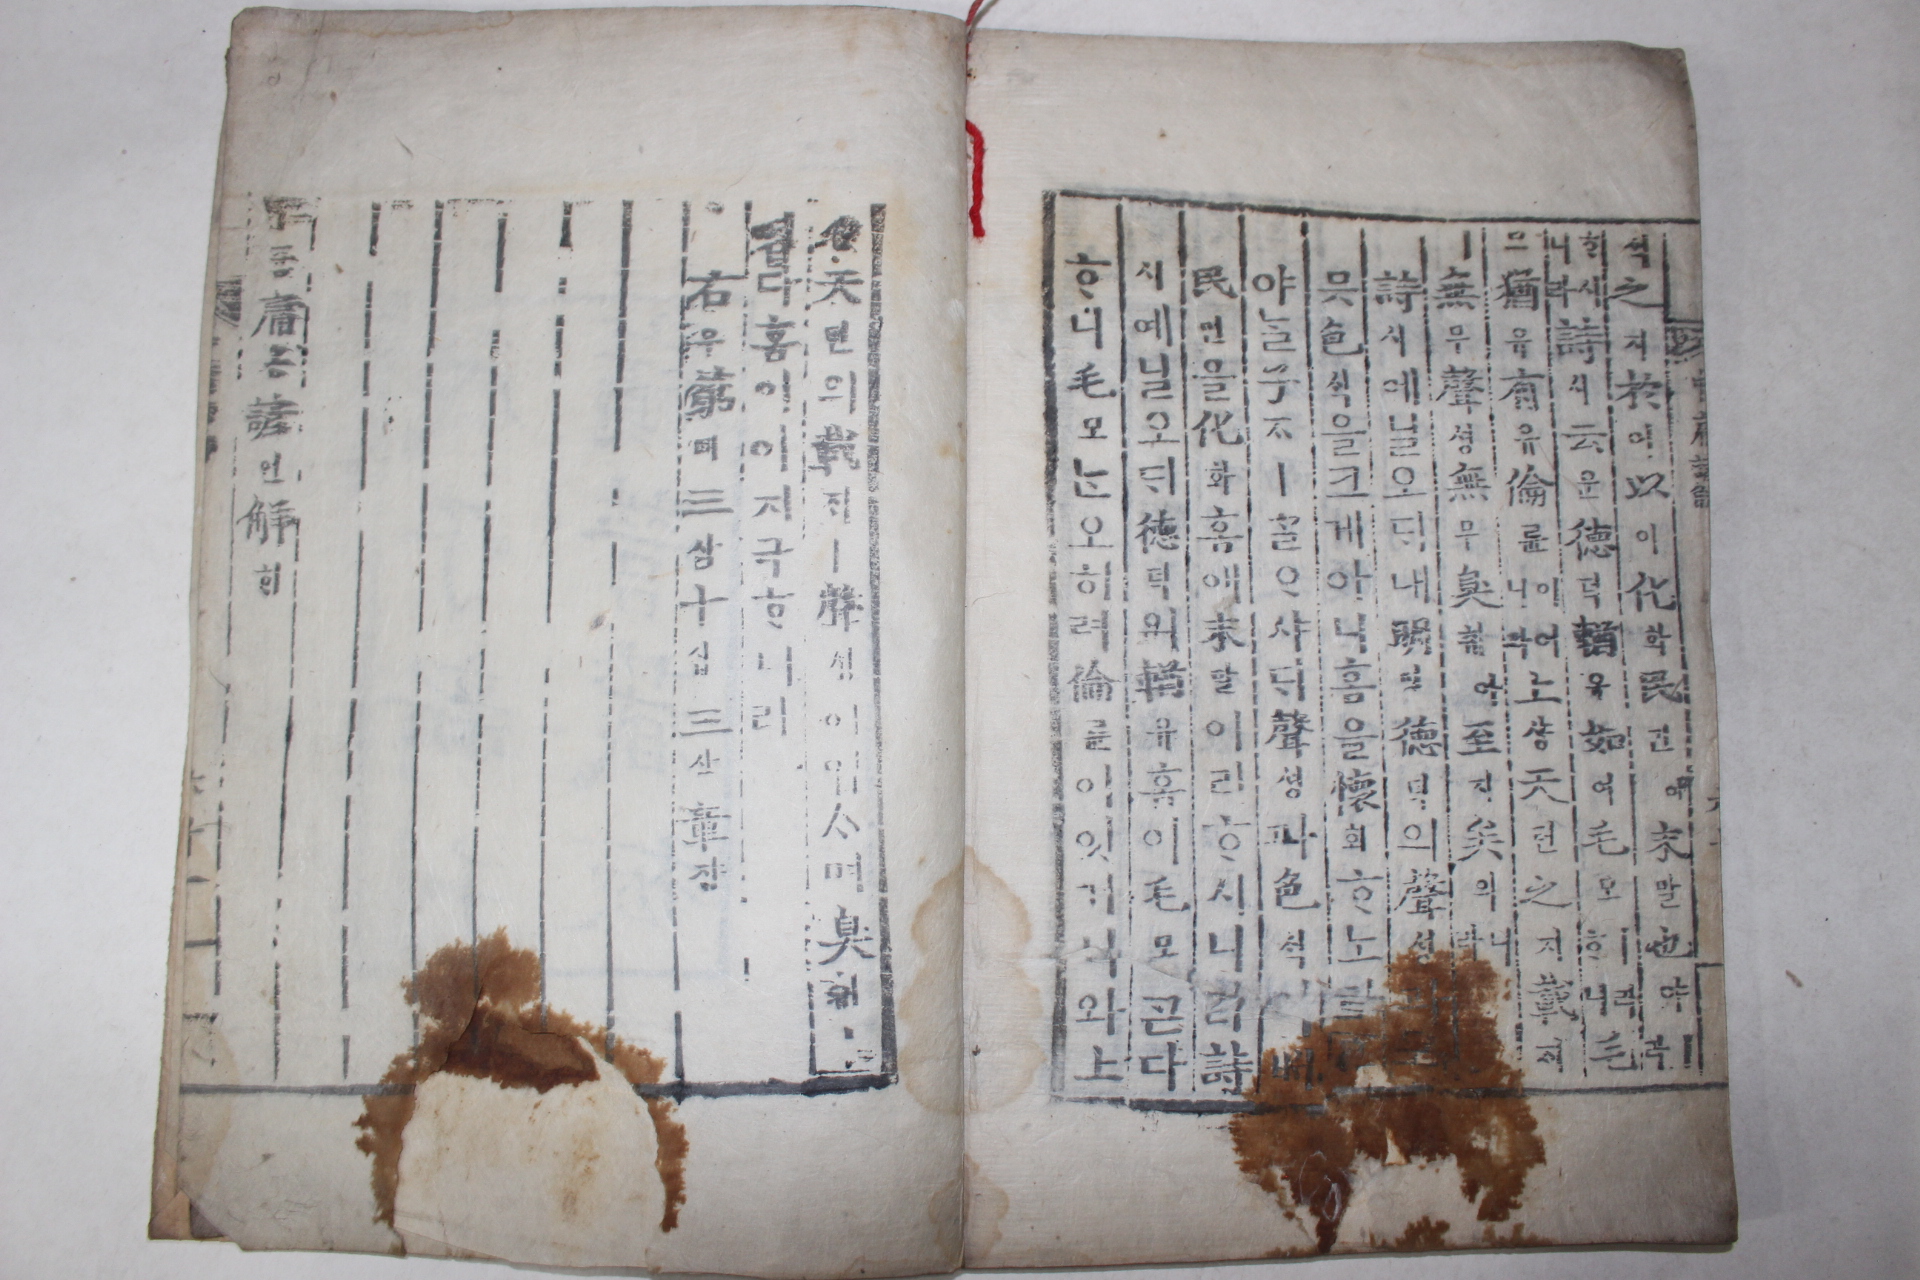 색之지於어以이化화民민애末말也야ㅣ라
하시니라詩시云운德덕輶유如여毛모ㅣ라하니毛모
猶유有유倫륜이어니와上샹天텬之지載ᄌᆡ
ㅣ無무聲셩無무臭취아至지矣의니라
詩시예닐오ᄃᆡ내明명德덕의聲셩과
믓色ᄉᆡᆨ을크게아니홈을懷회ᄒᆞ노라
야ᄂᆞᆯ子ᄌᆞㅣᄀᆞᆯᄋᆞ샤ᄃᆡ聲셩과色ᄉᆡᆨ이
民민을化화홈애末말이라ᄒᆞ시니라詩
시예닐오ᄃᆡ德덕의輶유홈이毛모ᄀᆞᆮ다
ᄒᆞ니毛모ᄂᆞᆫ오히려倫륜이잇거니와上
天텬의載ᄌᆡㅣ聲셩이이시며臭취
업다홈이이지극ᄒᆞ니라
右우第뎨三삼十십三삼章쟝
中듕庸용諺언解ᄒᆡ